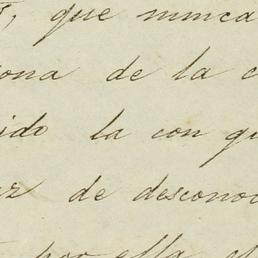 , que nunca
ona de la c
ido la con qu
az de descono
por ella el